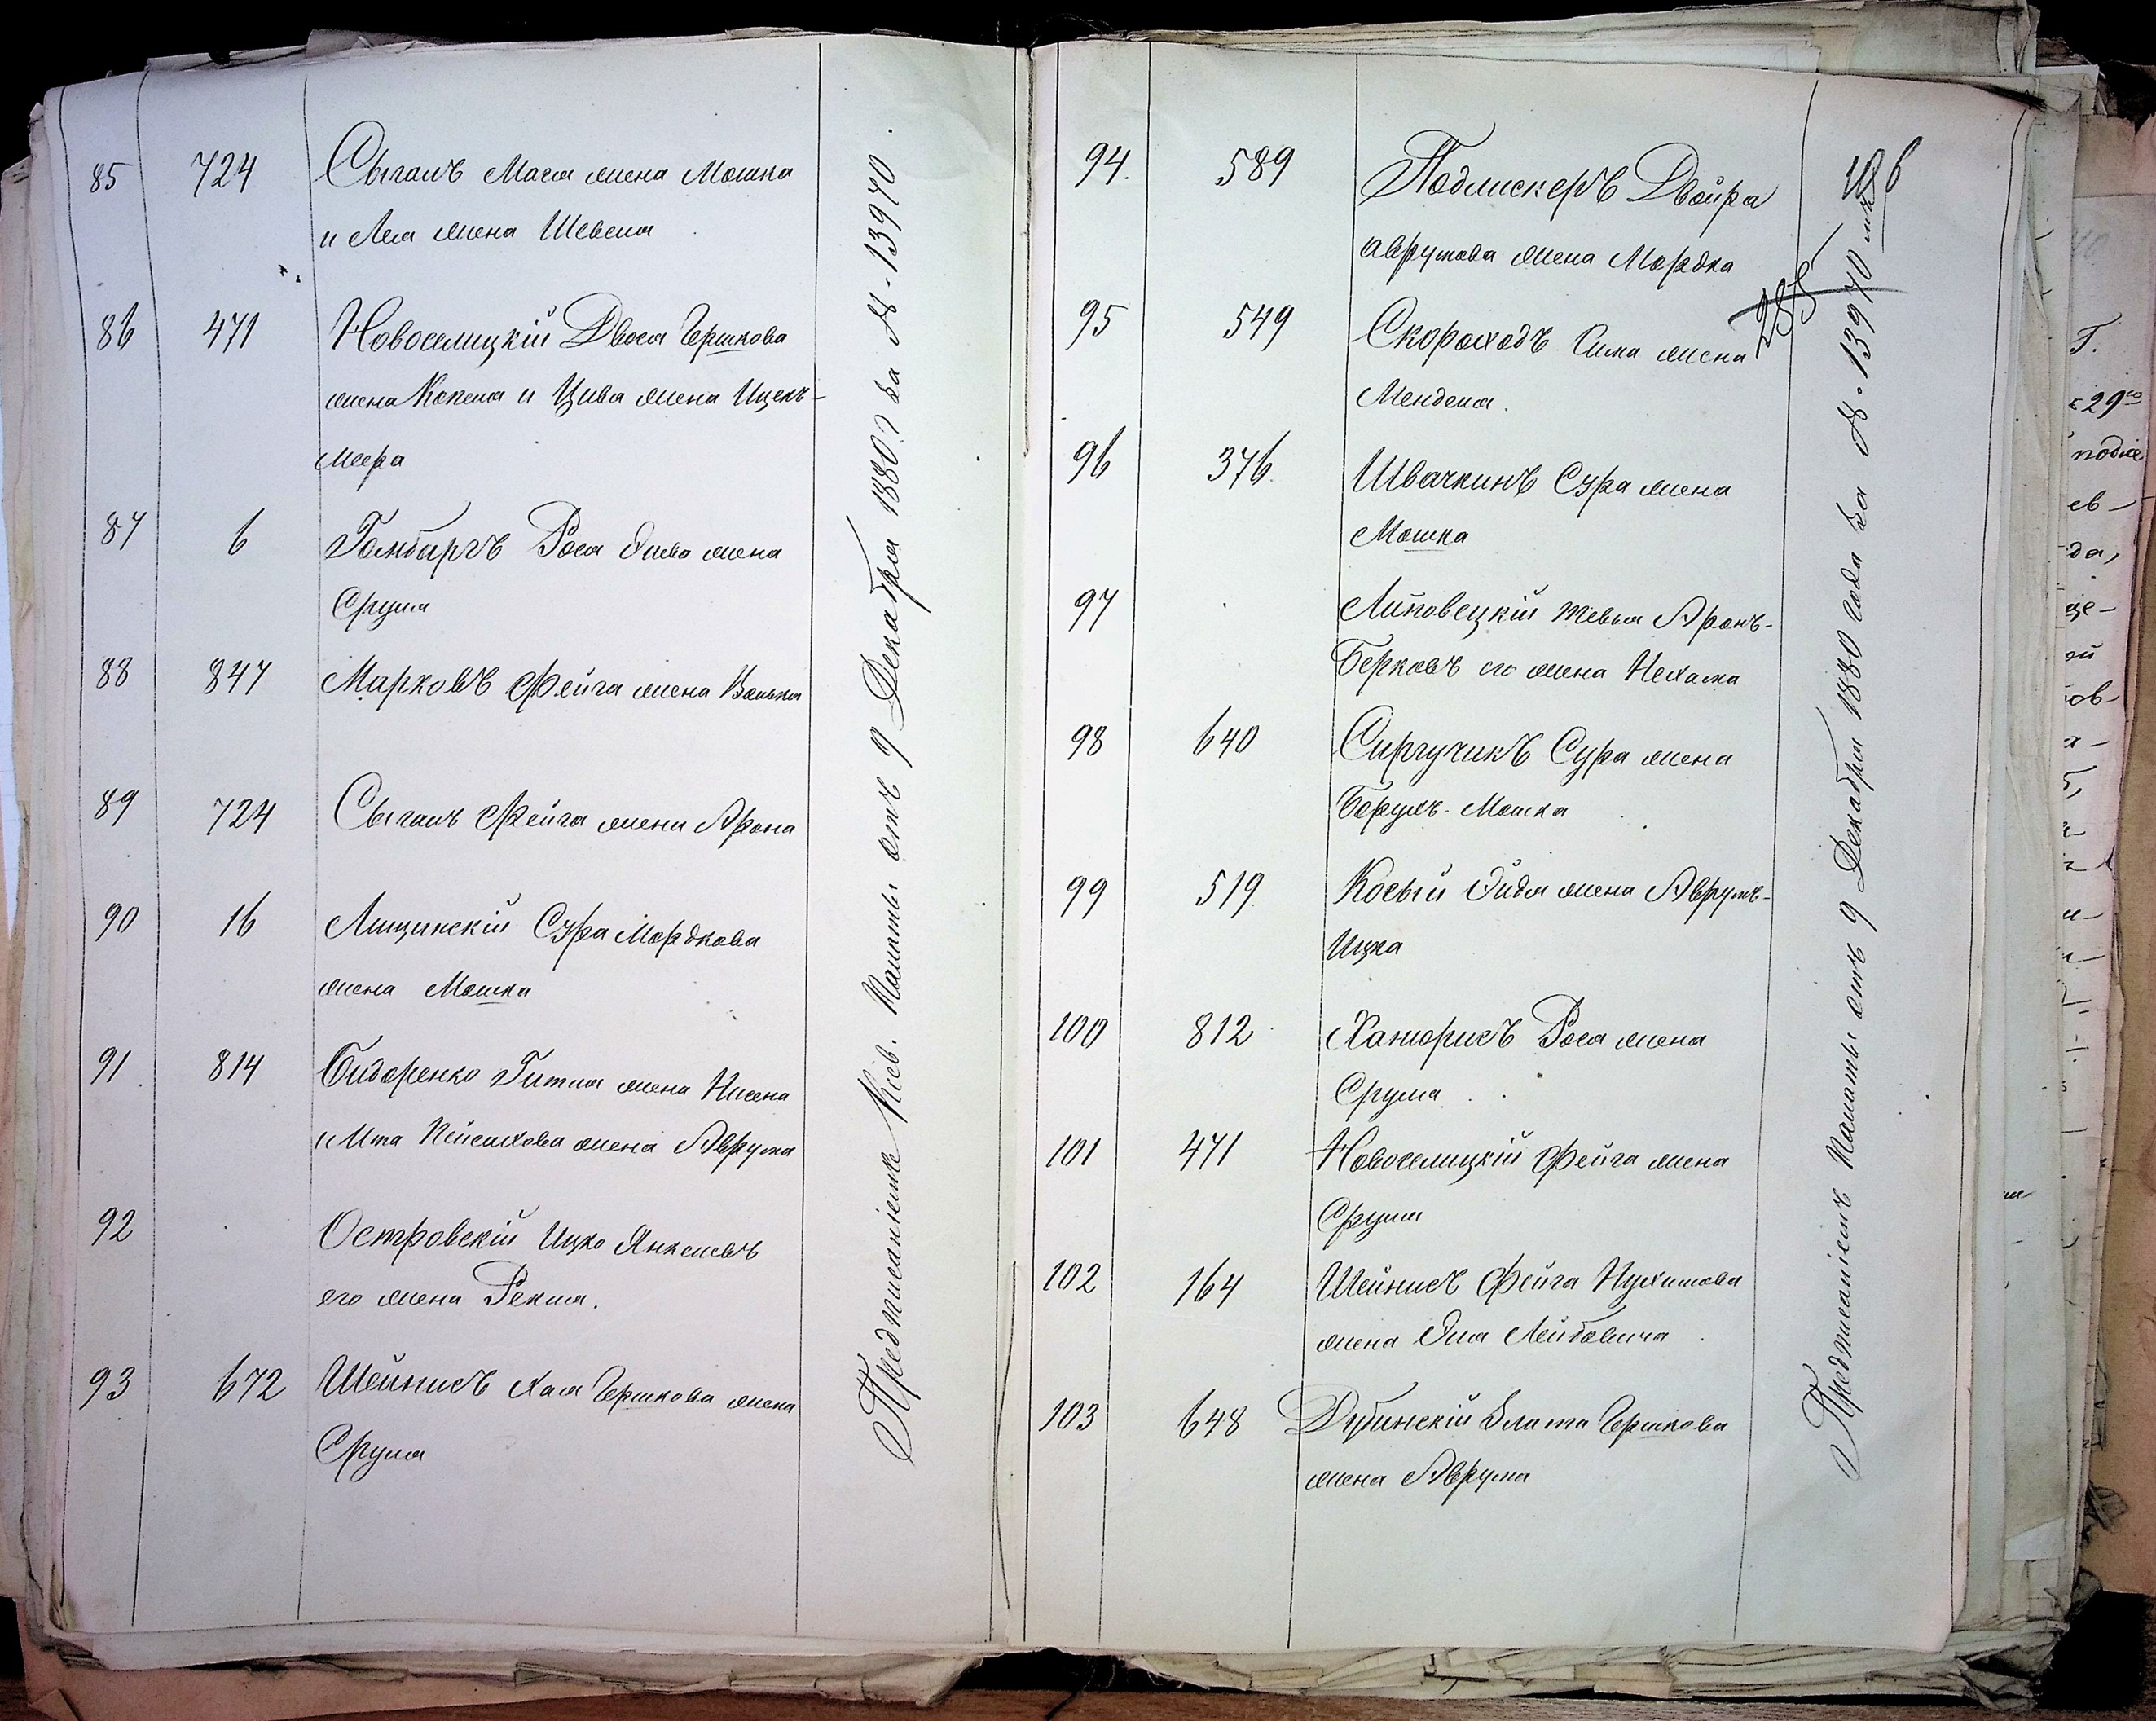 85 724 Сыгалъ Мася жена Мошка
и Лея жена Шевеля
86 471 Новоселицкій Двося Гершкова
жена Копеля и Цива жена Ицекъ-
Меера
87 6 Гольбаргъ Рося жена
Срула
88 847 Марковъ Фейга жена Волька
89 724 Сыгалъ Фейга жена Арона
90 16 Лищинскій Сура Мордкова
жена Мошка
91 814 Сидоренко Гитля жена Нисена
и Ита Пейсахова жена Аврума
92 Островскій Ицко Янкелевъ
его жена Рекля.
93 672 Шейнисъ Хая Гершкова жена
Срула
Предписаніемъ Кіев. Палаты отъ 9 Декабря 1880 г за №. 13970.
286
285
94. 589 Подлискеръ Двойра
Аврумова жена Мордка
95 549 Скороходъ Сима жена
Менделя.
96 376. Швачкинъ Сура жена
Мошка
97 Липовецкій Тевья Аронъ-
Берковъ его жена Нехама
98 640 Сиргучикъ Сура жена
Борухъ-Мошка
99 519 Косый Эйдя жена Аврумъ-
Ицка
100 812 Ханорисъ Рося жена
Срула
101 471 Новоселицкій Фейга жена
Срула
102 164 Шейнисъ Фейга Нухимова
жена Эля Лейбовича
103 648 Дубинскій Злата Гершкова
жена Аврума
Предписаніемъ Палаты отъ 9 Декабря 1880 года за №. 13970